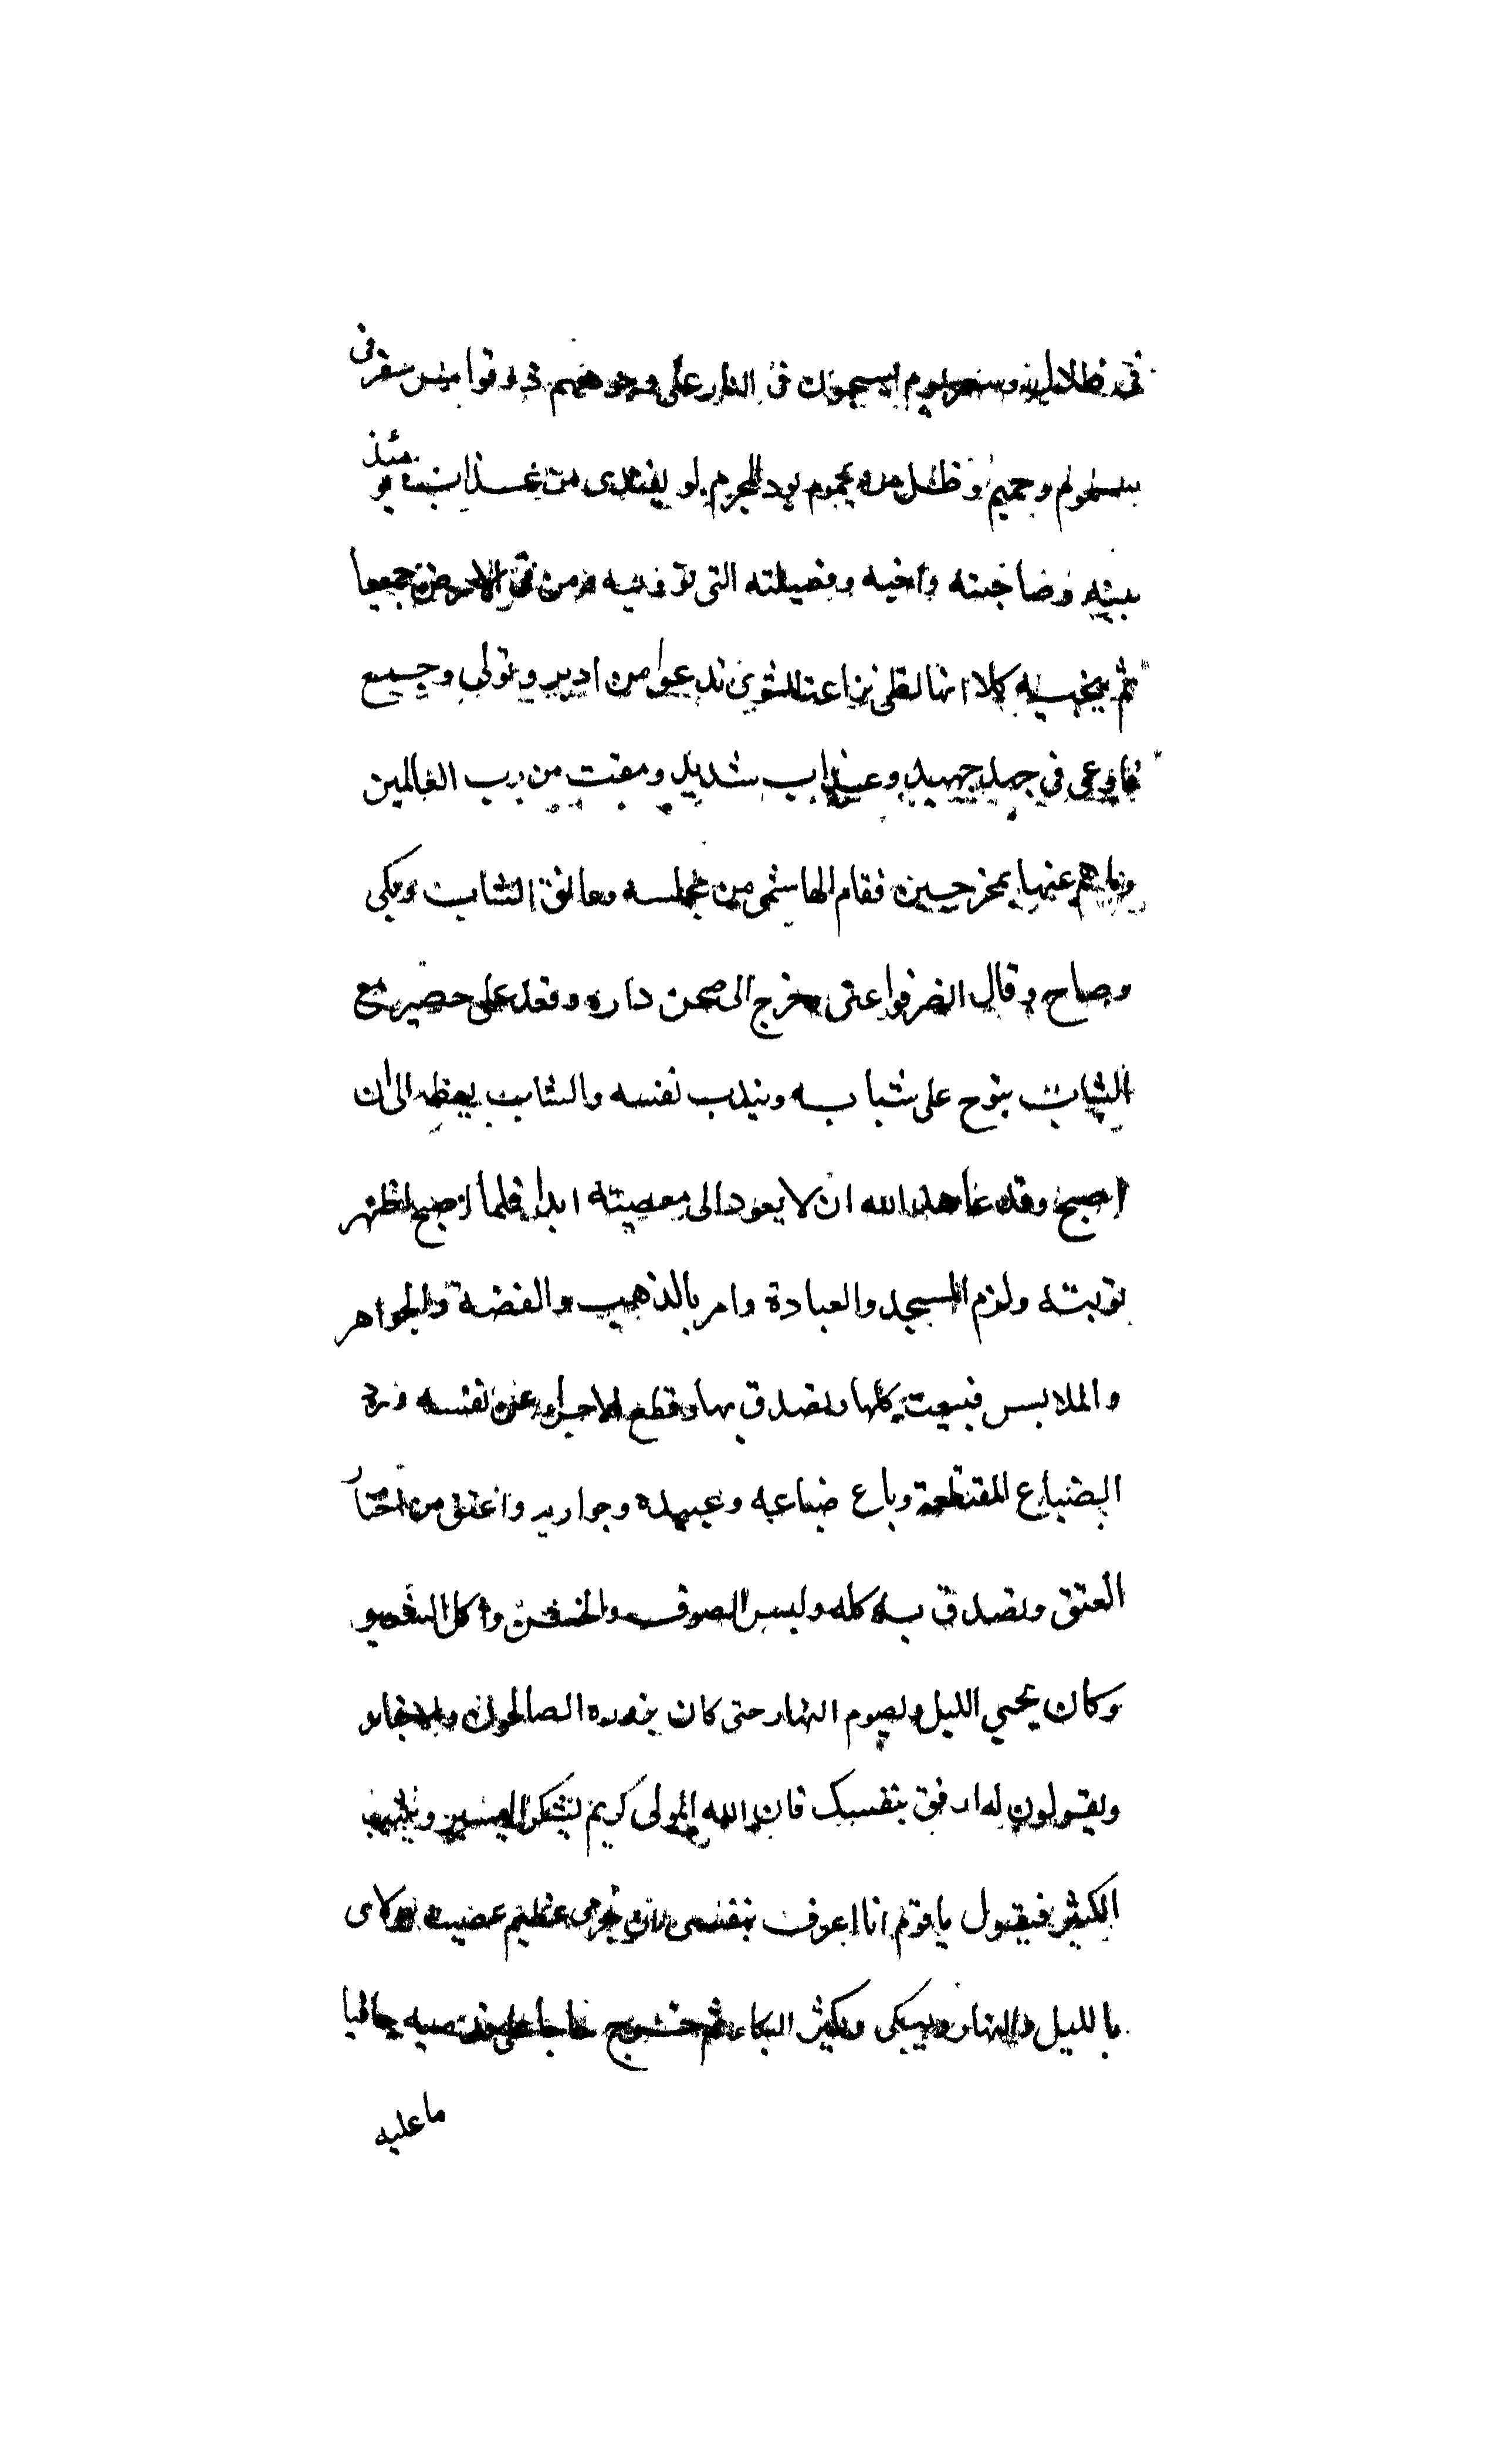 في ضلال وسعر يوم يسحبون في النار على وجوههم ذوقوا مس سقر في
سموم وحميم وظل من يحموم يود المجرم لو يفتدى من عذاب يومئذ
ببنيه وصاحبته واخيه وفصيلته التي تؤويه ومن في الارض جميعا
ثم ينجيه كلا انها لظى نزاعة للشوى تدعوا من ادبر وتولى وجمع
فاوعى في جهد جهيد وعذاب شديد ومقت من رب العالمين
وما هم عنها بمخرجين فقام الهاشمي من مجلسه وعانق الشاب وبكى
وصاح وقال انصرفوا عني وخرج الى صحن داره وقعد على حصير مع
الشاب ينوح على شبابه ويندب نفسه والشاب يعظه الى ان
اصبح وقد عاهد الله ان لا يعود الى معصيته ابدا فلما اصبح اظهر
توبته ولزم المسجد والعبادة وامر بالذهب والفضة والجواهر
والملابس فبيعت كلها وتصدق بها وقطع الاجراء عن نفسه ورد
الضياع المقتطعة وباع ضياعه وعبيده وجواريه واعتق من اختار
العتق وتصدق به كله ولبس الصوف والخشن واكل الشعير
وكان يحيي الليل ويصوم النهار حتى كان يزوره الصالحون والاخيار
ويقولون له ارفق بنفسك فان الله المولى كريم يشكر اليسير ويثيب
الكثير فيقول يا قوم انا اعرف بنفسي ان جرمي عظيم عصيت مولاى
بالليل والنهار ويبكي ويكثر البكاء ثم خرج حاجا على قدميه حافيا
ما عليه